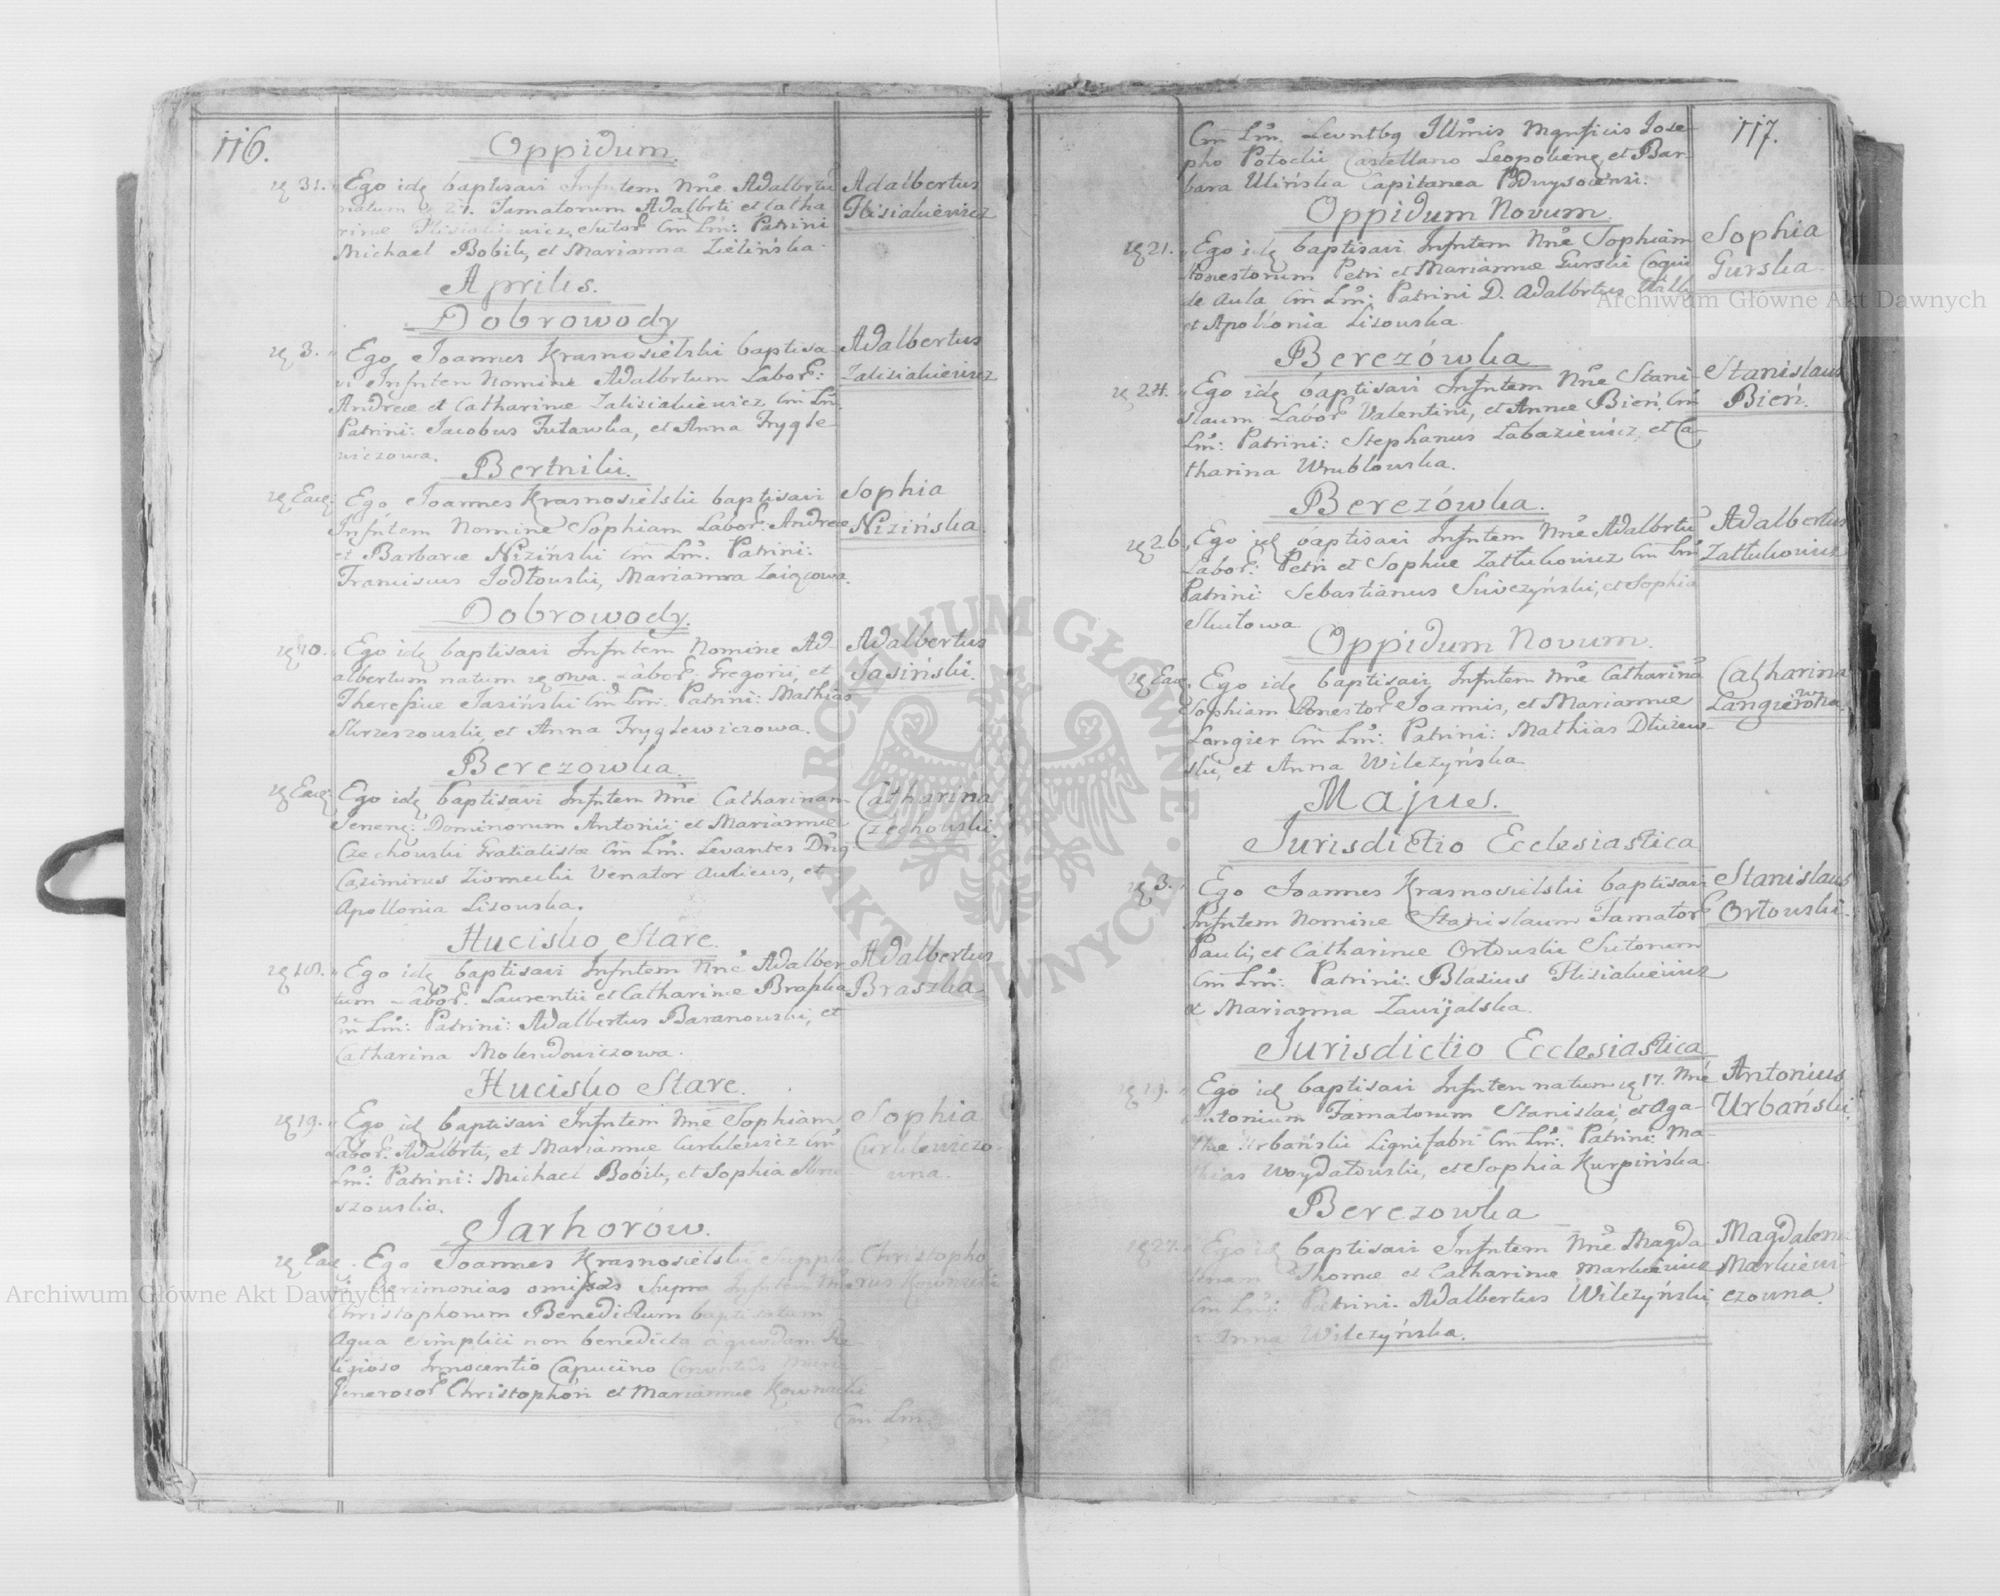 116.
Oppidum.
d. 31. Ego idę baptisavi Infntem Nne Adalbrtū
natum d 27. Famatorum Adalbrti et Catha
rinæ Flisiakiewicz Sutor. Cm Lm: Patrini
Michael Bobik, et Marianna Zielińska.
Adalbertus
Flisiakiewicz
Aprilis.
Dobrowody
d 3. Ego Joannes Krasnosielski baptisa
vi Infnten Nomine Adalbrtum Labor:
Andreæ et Catharinæ Zalisiakiewicz Cm Lm.
Patrini: Jacobus Putawka, et Anna Frygle
wiczowa.
Adalbertus
Zalisiakiewicz
Bertniki.
d. Eaq; Ego Joannes Krasnosielski baptisavi
Infntem Nomine Sophiam Labor. Andreæ
et Barbaræ Niziński Cm Lm. Patrini:
Franciscus Jodłouski, Marianna Zaiącowa.
Sophia
Nizińska.
Dobrowody.
d 10. Ego idę baptisavi Infntem Nomine Ad-
albertum natum d 9va. Labor. Gregorii, et
Theresiæ Jasiński Cm Lm. Patrini: Mathias
Strzeszouski, et Anna Fryglewiczowa.
Adalbertus
Jasiński.
Berezowka.
d Eaq; Ego idę baptisavi Infntem Nne Catharinam
Geneng: Dominorum Antonii, et Mariannæ
Czechouski Gratialistæ Cm Lm. Levantes Dng
Casimirus Ziomecki Venator Aulicus, et
Apollonia Lisouska.
Catharina
Czechouski.
Hucisko Stare.
d 18. Ego idę baptisavi Infntem Nne Adalber
tum Labor. Laurentii et Catharinæ Braszka
Cm Lm: Patrini: Adalbertus Baranouski, et
Catharina Molendowiczowa.
Adalbertus
Braszka
Hucisko Stare.
d 19. Ego idę baptisavi Infntem Nne Sophiam
Labor. Adalbrti, et Mariannæ Curklewicz Cm
Lm: Patrini: Michael Bobik, et Sophia Strze
szouska.
Sophia
Curklewiczo-
wna.
Jarhorów.
d Eaq. Ego Joannes Krasnosielski Supple
vi Cerimonias omissas Supra Infntem Nne
Christophorum Benedictum baptisatum
Aqua simplici non benedicta à quodam Re
ligioso Innocentio Capucino Conventus
Generosor Christophori et Mariannæ Kownacki
Cm Lm.
Christopho
rus Kownacki
117.
Cm Lm. Levntbg Illmis Mgnficis Jose
pho Potocki Castellano Leopolieng, et Bar-
bara Ulińska Capitanea
Oppidum Novum.
d 21. Ego idę baptisavi Infntem Nne Sophiam
Honestorum Petri et Mariannæ Gurski Coqui
de Aula Cm Lm: Patrini D. Adalbrtus
et Apollonia Lisouska.
Sophia
Gurska.
Berezówka
d 24. Ego idę baptisavi Infntem Nne Stani
slaum Labor Valentini, et Annæ Bień, Cm
Lm: Patrini: Stephanus Labaziewicz, et Ca
tharina Wrublowska.
Stanislaus
Bień.
Berezówka.
d 26. Ego idę baptisavi Infntem Nne Adalbrtū
Labor: Petri et Sophiæ Zattukowicz Cm Lm
Patrini: Sebastianus Siwczyński, et Sophia
Skutowa
Adalbertus
Zattukowicz
Oppidum Novum.
d Eaq. Ego idę baptisavi Infntem Nne Catharinā
Sophiam Honestor Joannis, et Mariannæ
Langier Cm Lm: Patrini: Mathias Dłużew-
ski, et Anna Wilczyńska
Catharina
Langierowna.
Majus.
Jurisdictio Ecclesiastica
d 3. Ego Joannes Krasnosielski baptisavi
Infntem Nomine Stanislaum Famator
Pauli, et Catharinæ Ortouski Sutorum
Cm Lm: Patrini: Blasius Flisiakiewicz
et Marianna Zawijalska.
Stanislaus
Ortouski.
Jurisdictio Ecclesiastica
d 19. Ego idę baptisavi Infnten natum d 17. Nne
Antonium Famatorum Stanislai, et Aga-
thæ Urbański Lignifabri Cm Lm. Patrini: Ma-
thias Woydatouski, et Sophia Kurpińska.
Antonius
Urbański.
Berezowka
d 27. Ego idę baptisavi Infntem Nne Magda
lenam Thomæ et Catharinæ Markiewicz
Cm Lm: Patrini. Adalbertus Wilczyński
et Anna Wilczyńska.
Magdalena
Markiewi-
czowna.
Archiwum Główne Akt Dawnych
Archiwum Główne Akt Dawnych
ARCHIWUM GŁÓWNE AKT DAWNYCH